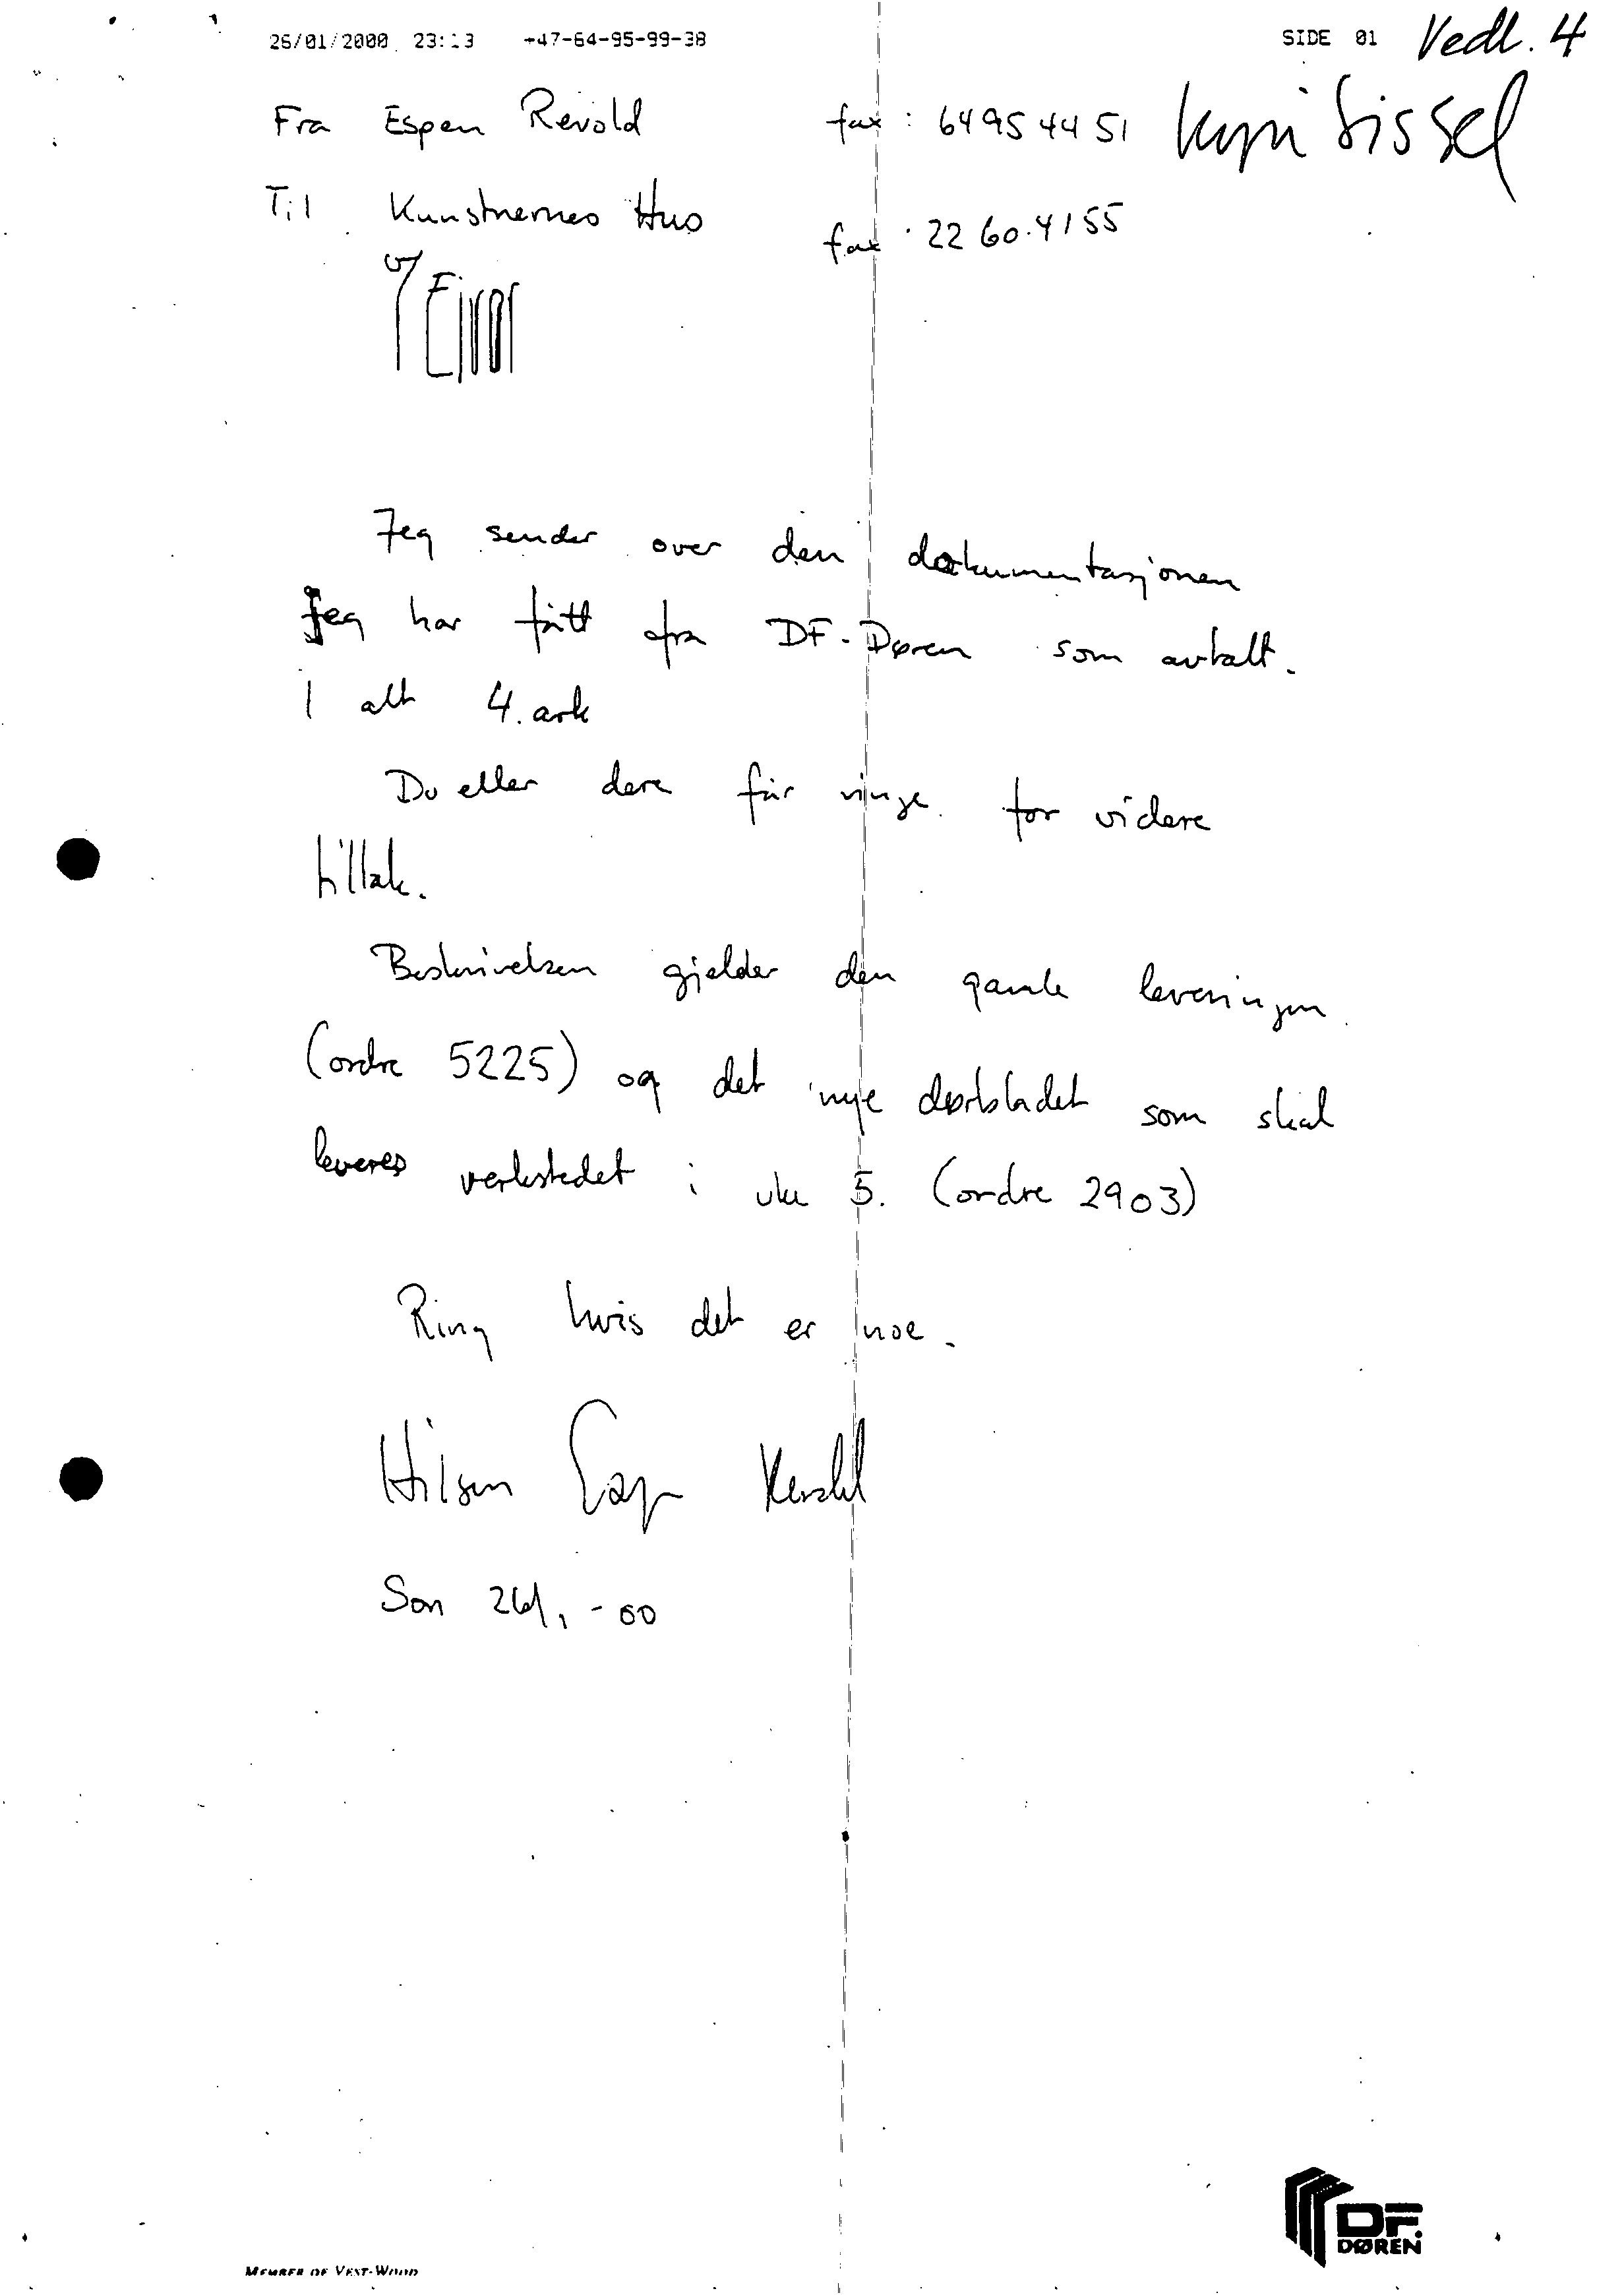 26/01/2000 23:13 +47-64-95-99-38 SIDE 01 Vedl. 4
Fra Espen Revold fax: 64954451 kopi Sissel
Til Kunstnernes Hus fax: 22 60.4155
v/ Eivor
Jeg sender over den dokumentasjonen
Jeg har fått fra DF-Døren som avtalt.
I alt 4. ark
Du eller dere får ringe for videre
tiltak.
Beskrivelsen gjelder den gamle leveringen
(ordre 5225) og det nye dørbladet som skal
leveres verkstedet i uke 5. (ordre 2903)
Ring hvis det er noe.
Hilsen Espen Revold
Son 261,-00
DF.
DØREN
MEMBER OF VEST-WOOD